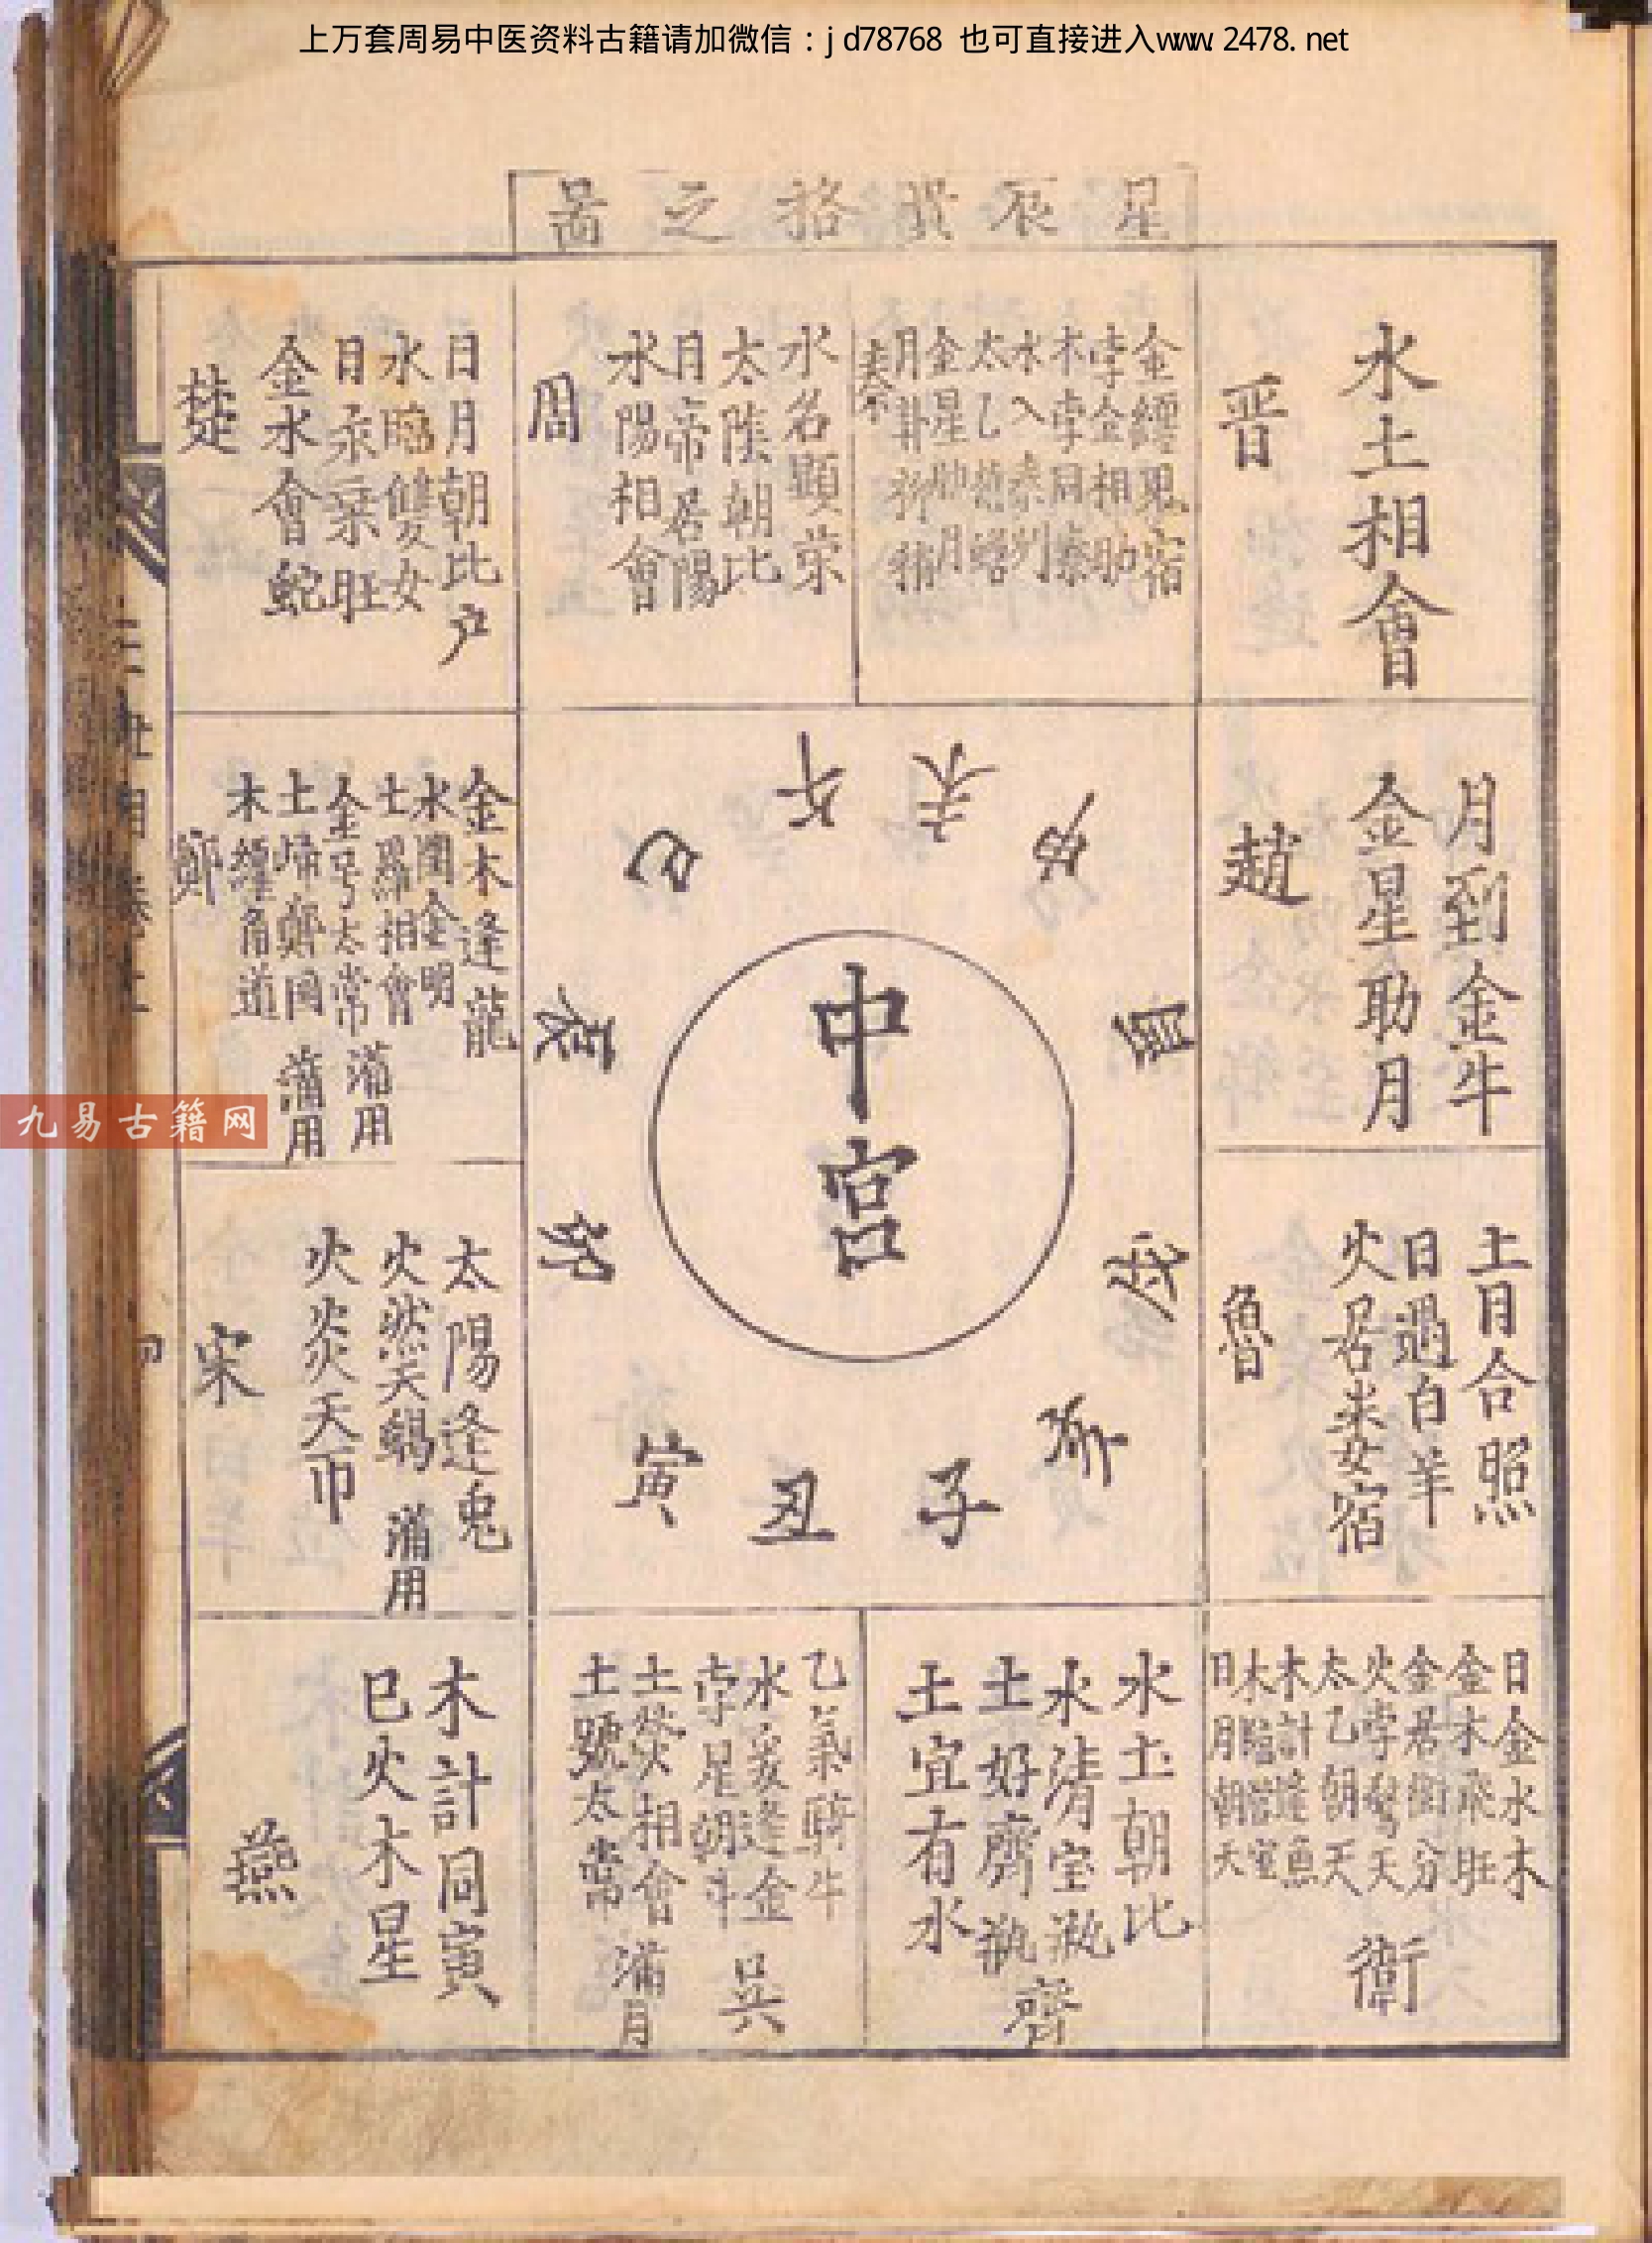 上万套周易中医资料古籍请加微信：jd78768 也可直接进入www.2478.net
星辰貴格之啚
水土相會
晋
金纏鬼宿
孛金相助
木孛同秦
水入秦州
太乙
金星助月
月
秦
水名顯荣
太陰朝北
月帝居陽
水陽相會
周
日月朝北户
水臨雙女
日乘旺
金水會蛇
楚
月到金牛
金星助月
趙
金木逢龍
水潤金明
土羅相會
金号太常 滿用
土歸鄭國 滿用
木纏角道
鄭
土月合照
日過白羊
火居娄宿
魯
太陽逢兔
火然天蝎 滿用
火炎天
宋
午
未
申
酉
戌
亥
子
丑
寅
卯
辰
巳
中宮
日金水木
金水飛旺
金居衛分
火孛駕天
太乙朝天
木計逢魚
木臨營室
日月朝天
衛
水土朝北
水清宝瓶
土好齊瓶
土宜有水
齊
乙氣騎牛
水炁逢金
孛星朝斗
土熒相會
土號太常
吴
滿月
木計同寅
巳火木星
燕
九易古籍网